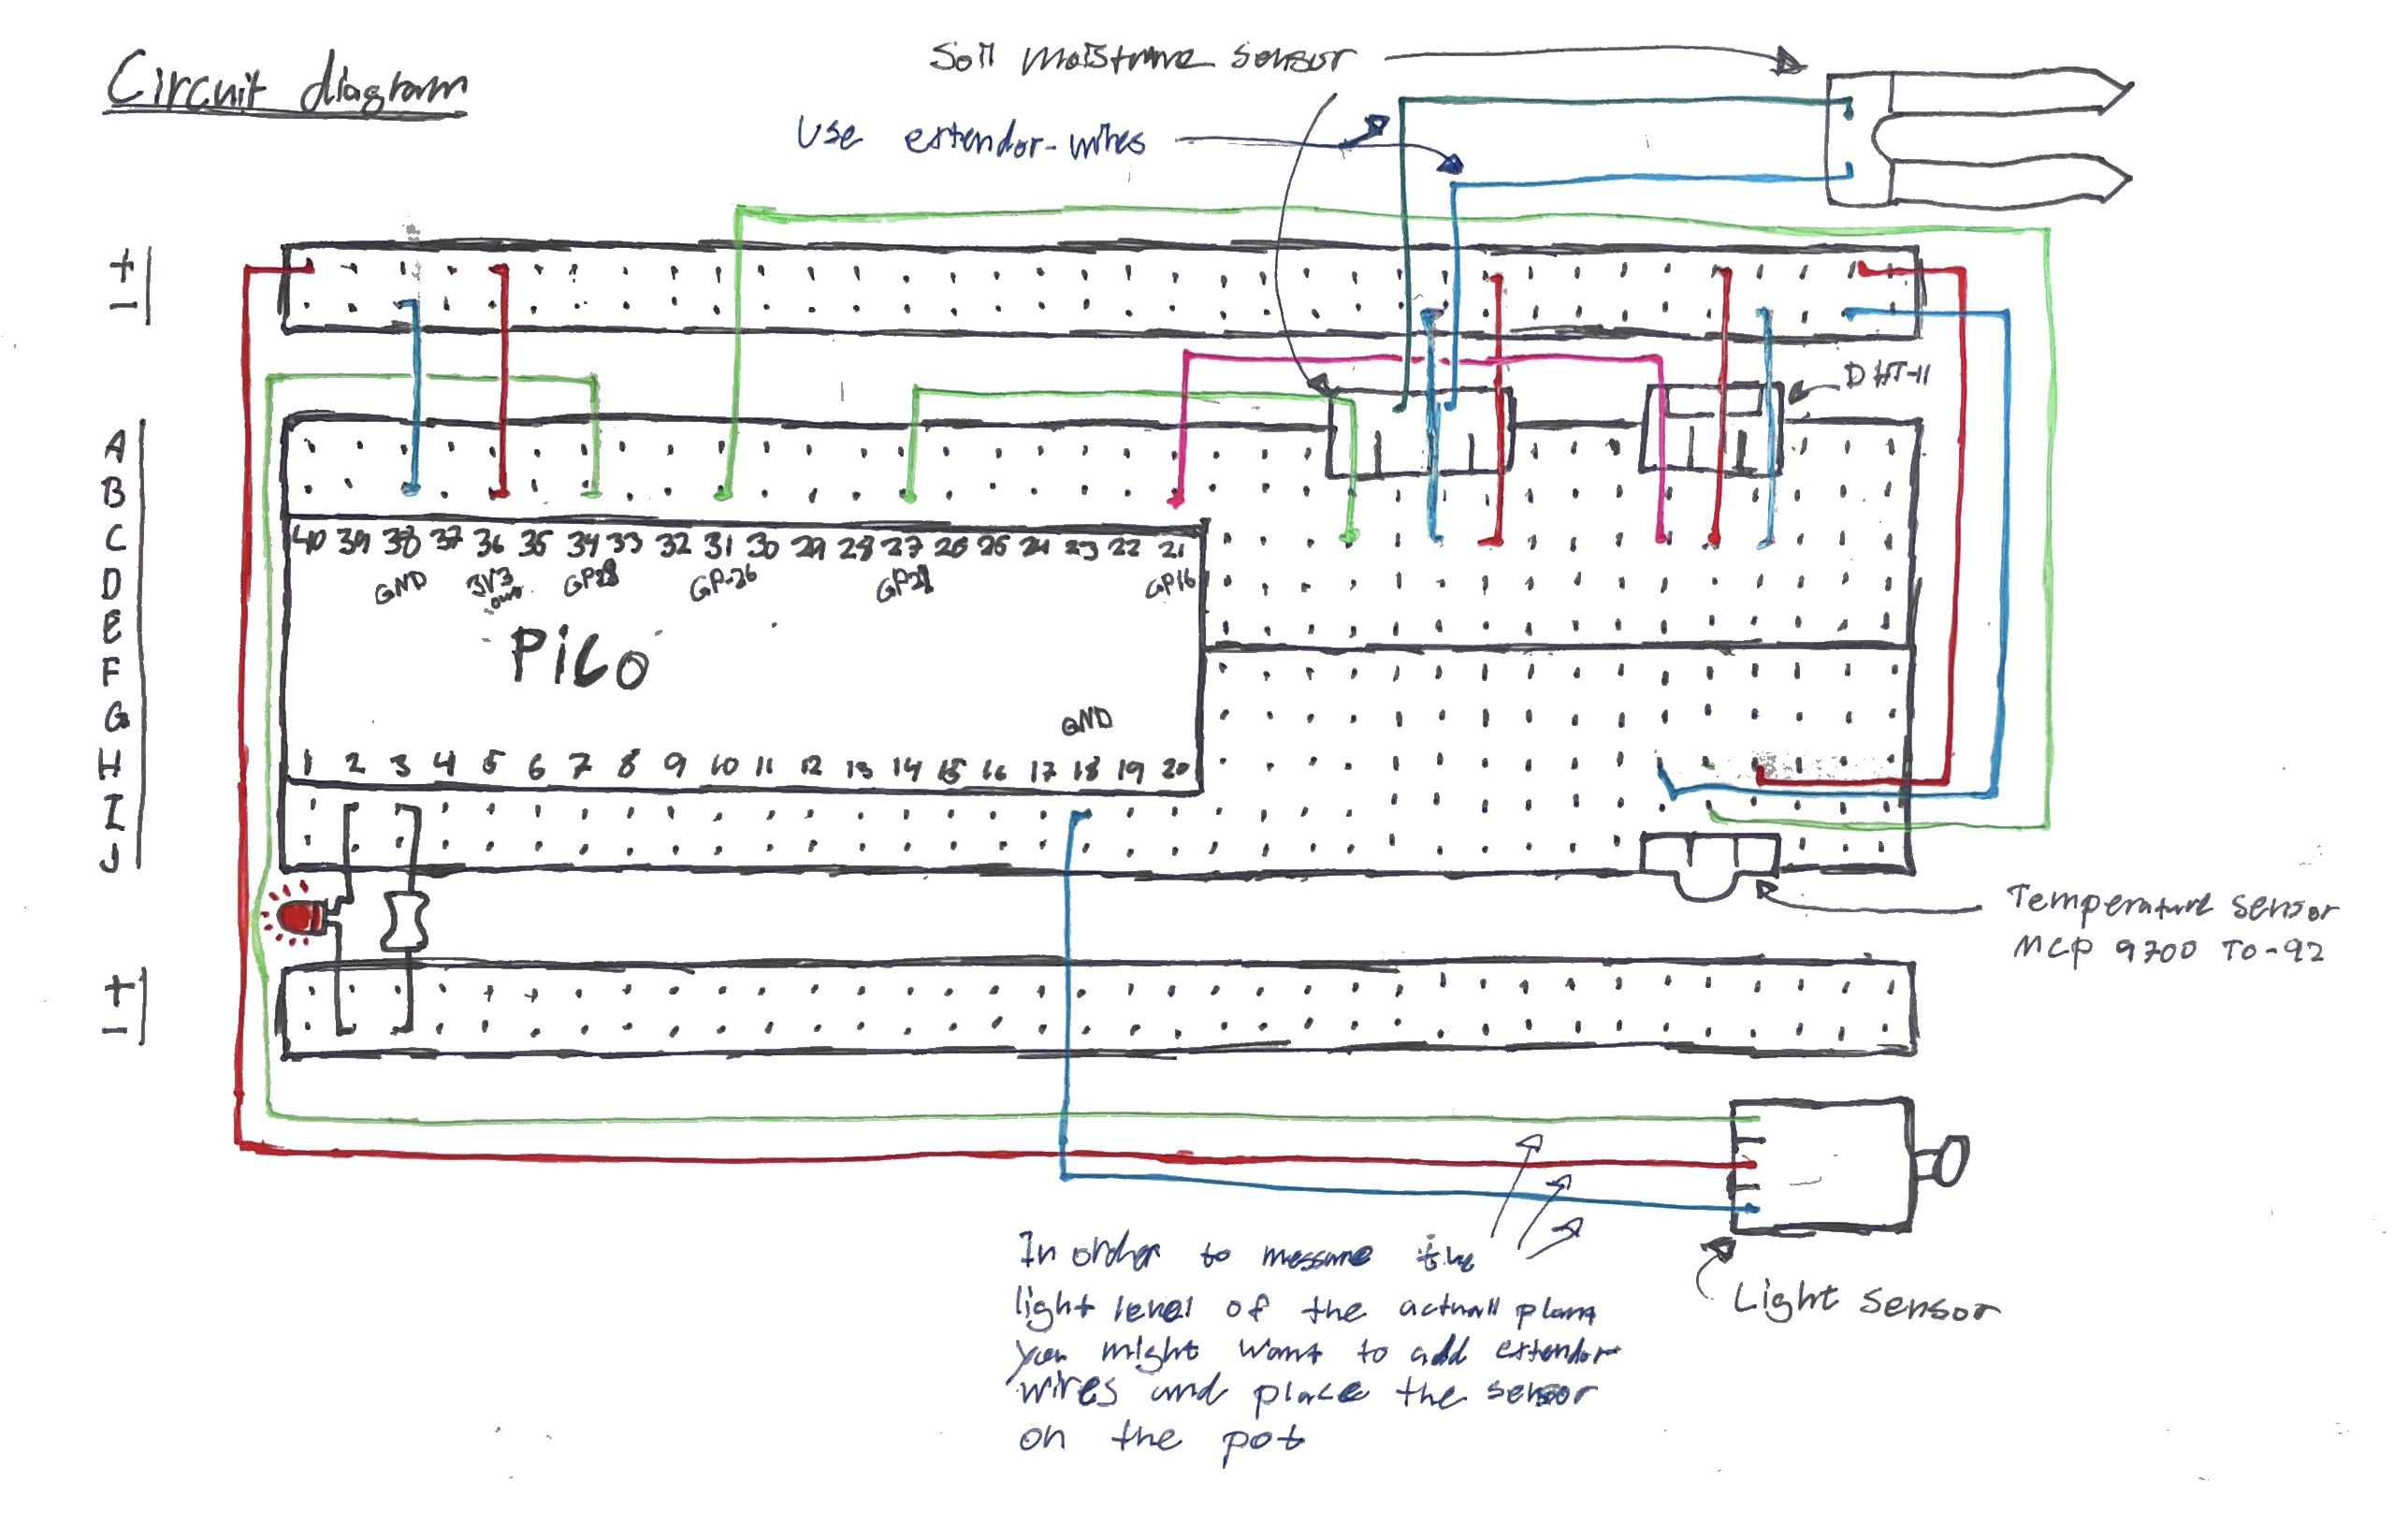 Circuit diagram
Soil moisture sensor
Use extendor-wires
+
-
DHT-11
A
B
C
D
E
F
G
H
I
J
40 39 38 37 36 35 34 33 32 31 30 29 28 27 26 25 24 23 22 21
GND 3V3 GP28 GP-26 GP21 GP16
out
Pico
GND
1 2 3 4 5 6 7 8 9 10 11 12 13 14 15 16 17 18 19 20
Temperature sensor
MCP 9700 TO-92
+
-
In order to messure the
light level of the actuall plant
you might want to add extendor
wires and place the sensor
on the pot
Light sensor